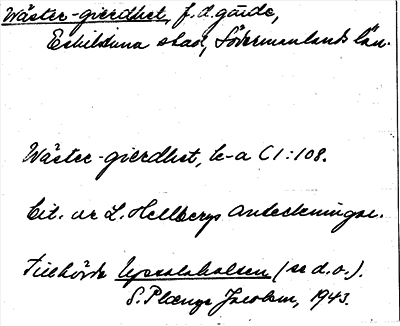 Wäster-gierdhet, f.d. gärde,
Eskilstuna stad, Södermanlands län.
Wäster-gierdhet, k-a C I:108.
Cit. ur L. Hellbergs anteckningar.
Tillhörde (se d.o.).
S. Plænge Jacobson, 1943.